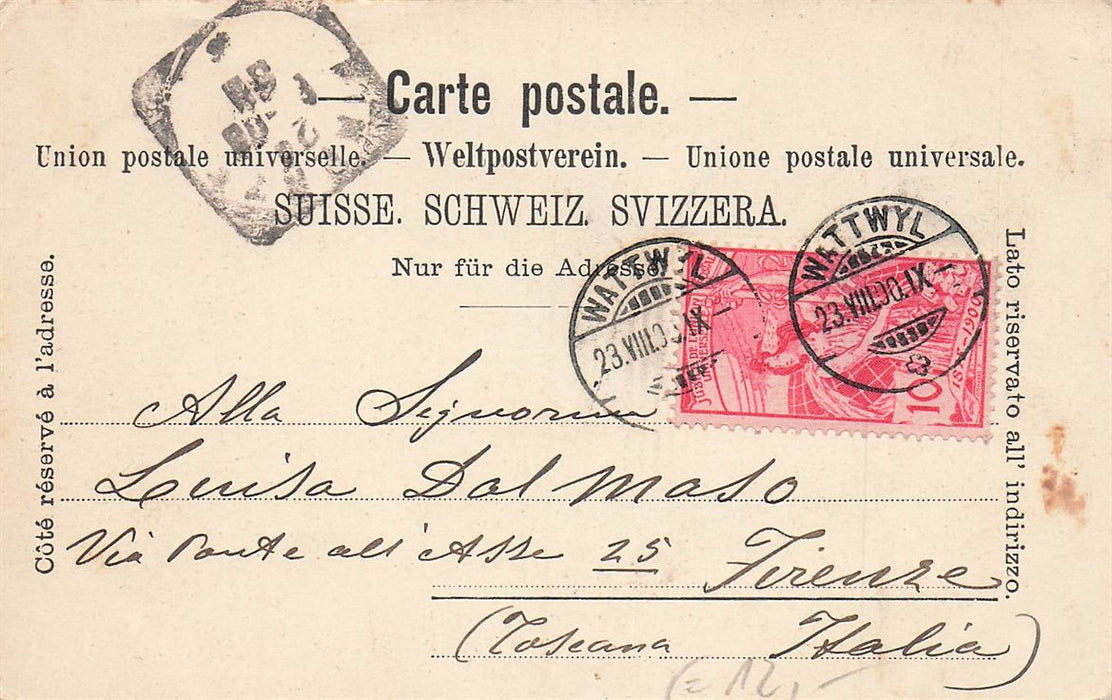 — Carte postale. —
Union postale universelle. — Weltpostverein. — Unione postale universale.
SUISSE. SCHWEIZ. SVIZZERA.
Nur für die Adresse.
Côté réservé à l'adresse.
Lato riservato all' indirizzo.
WATTWYL
23.VIII.00.IX
WATTWYL
23.VIII.00.IX
10
Alla Signorina
Luisa Dal Maso
Via Ponte all' Asse 25 Firenze
(Toscana Italia)
12,-